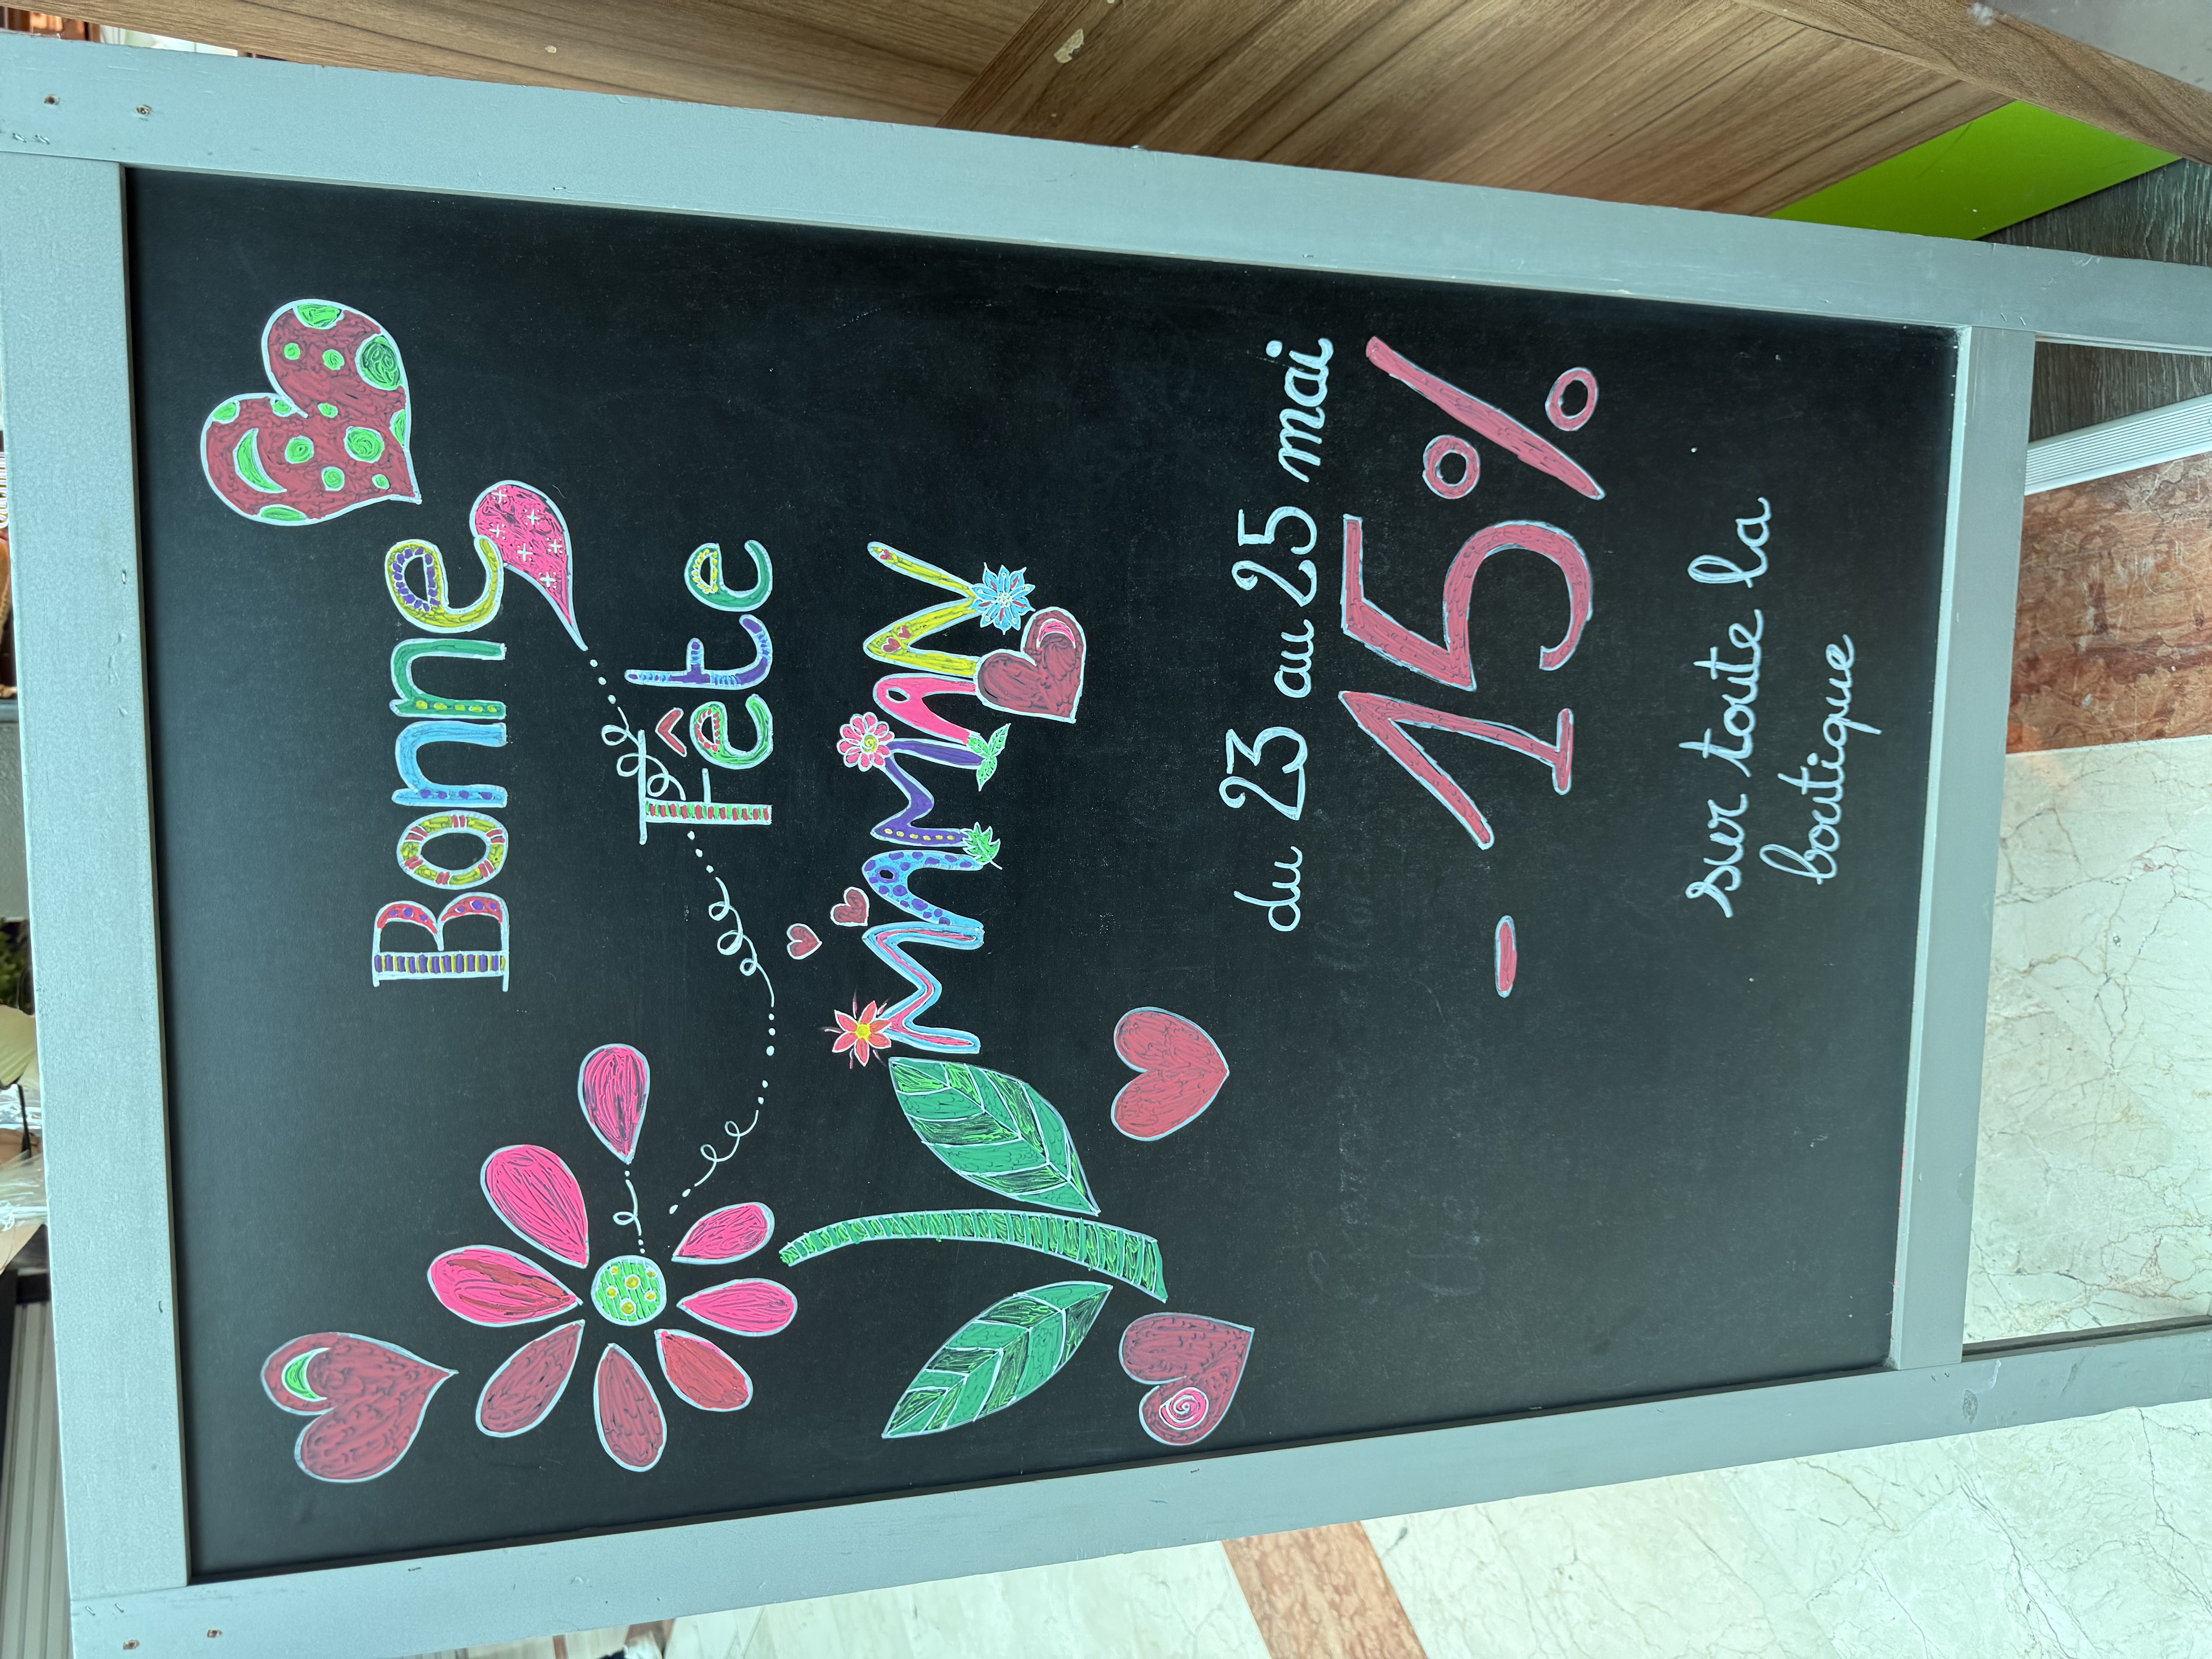 Bonne
Fête
MAMAN
du 23 au 25 mai
- 15%
sur toute la
boutique